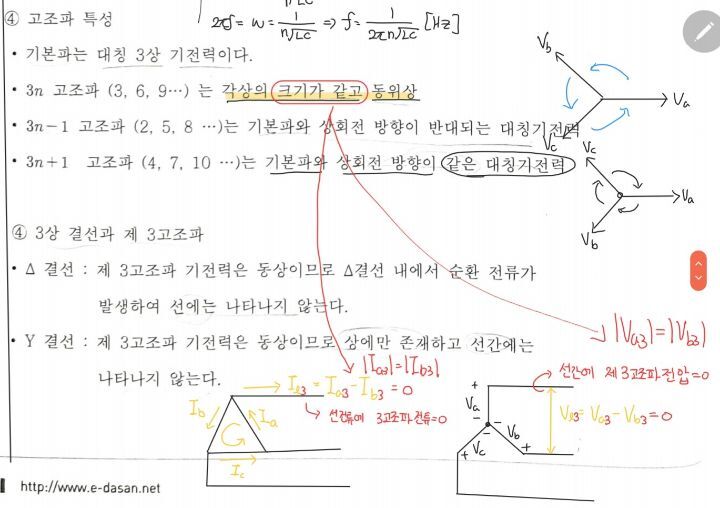 n√LC
2πf = w = 1/n√LC ⇒ f = 1/2πn√LC [Hz]
④ 고조파 특성
• 기본파는 대칭 3상 기전력이다.
• 3n 고조파 (3, 6, 9⋯) 는 각상의 크기가 같고 동위상
• 3n-1 고조파 (2, 5, 8 ⋯)는 기본파와 상회전 방향이 반대되는 대칭기전력
• 3n+1 고조파 (4, 7, 10 ⋯)는 기본파와 상회전 방향이 같은 대칭기전력
Vb
Va
Vc
Vc
Va
Vb
④ 3상 결선과 제 3고조파
• Δ 결선 : 제 3고조파 기전력은 동상이므로 Δ결선 내에서 순환 전류가
발생하여 선에는 나타나지 않는다.
• Y 결선 : 제 3고조파 기전력은 동상이므로 상에만 존재하고 선간에는
나타나지 않는다.
|Va3|=|Vb3|
|Ia3|=|Ib3|
Il3 = Ia3 - Ib3 = 0
선전류에 3고조파전류=0
Ib
Ia
Ic
선간에 제3고조파전압=0
+
Va
-
Vl3 = Va3 - Vb3 = 0
- -
Vc Vb
+ +
http://www.e-dasan.net